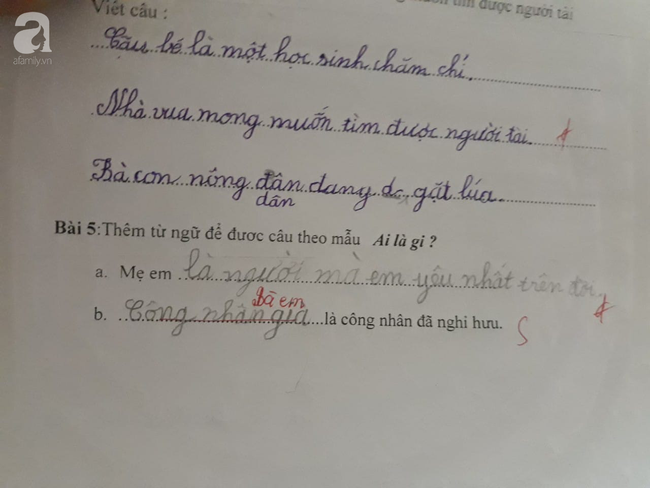 a
afamily.vn
Viết câu :
muốn tìm được người tài
Cậu bé là một học sinh chăm chỉ.
Nhà vua mong muốn tìm được người tài.
Bà con nông đân dang gặt lúa.
dân
Bài 5:Thêm từ ngữ để đươc câu theo mẫu Ai là gi ?
a. Mẹ em là người mà em yêu nhất trên đời.
Bà em
b. Công nhân già là công nhân đã nghi hưu. S